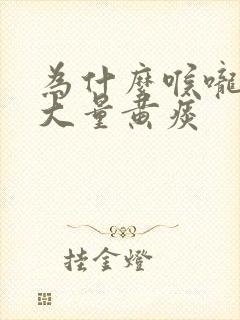 为什麼喉嚨
大量黄痰
挂金燈